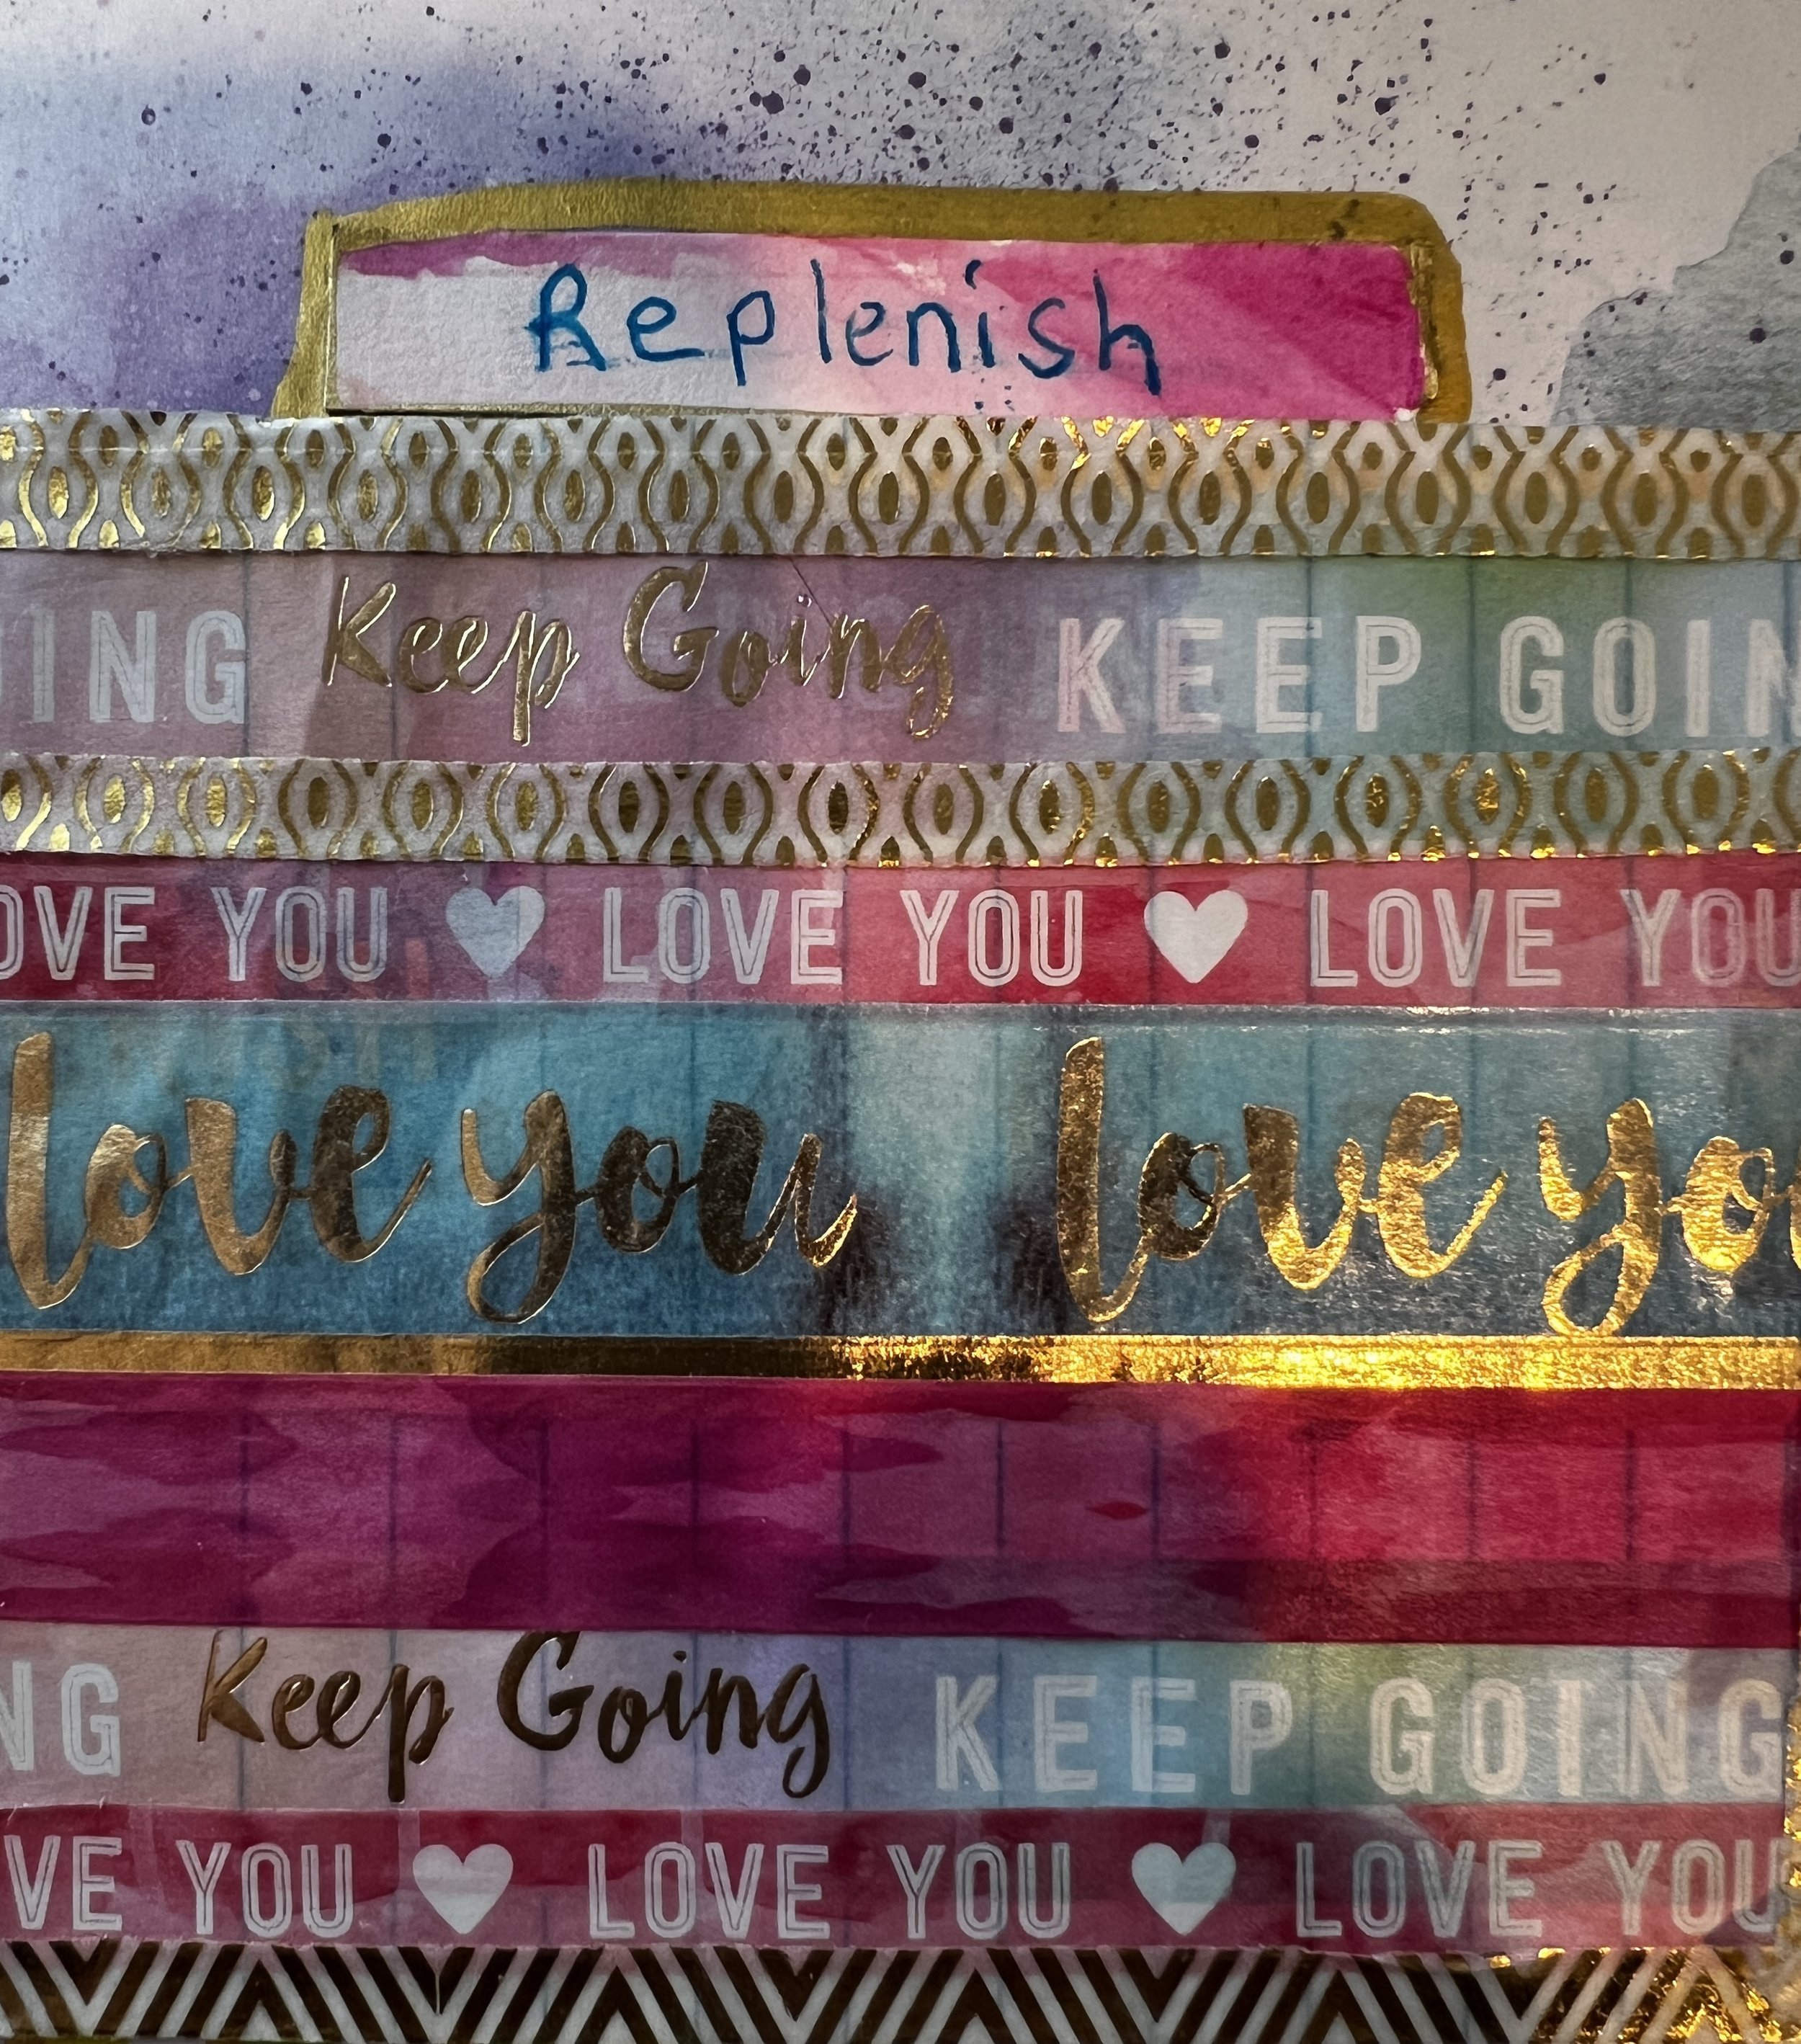 Replenish
ING Keep Going KEEP GOIN
OVE YOU LOVE YOU LOVE YOU
love you love yo
NG Keep Going KEEP GOING
VE YOU LOVE YOU LOVE YOU